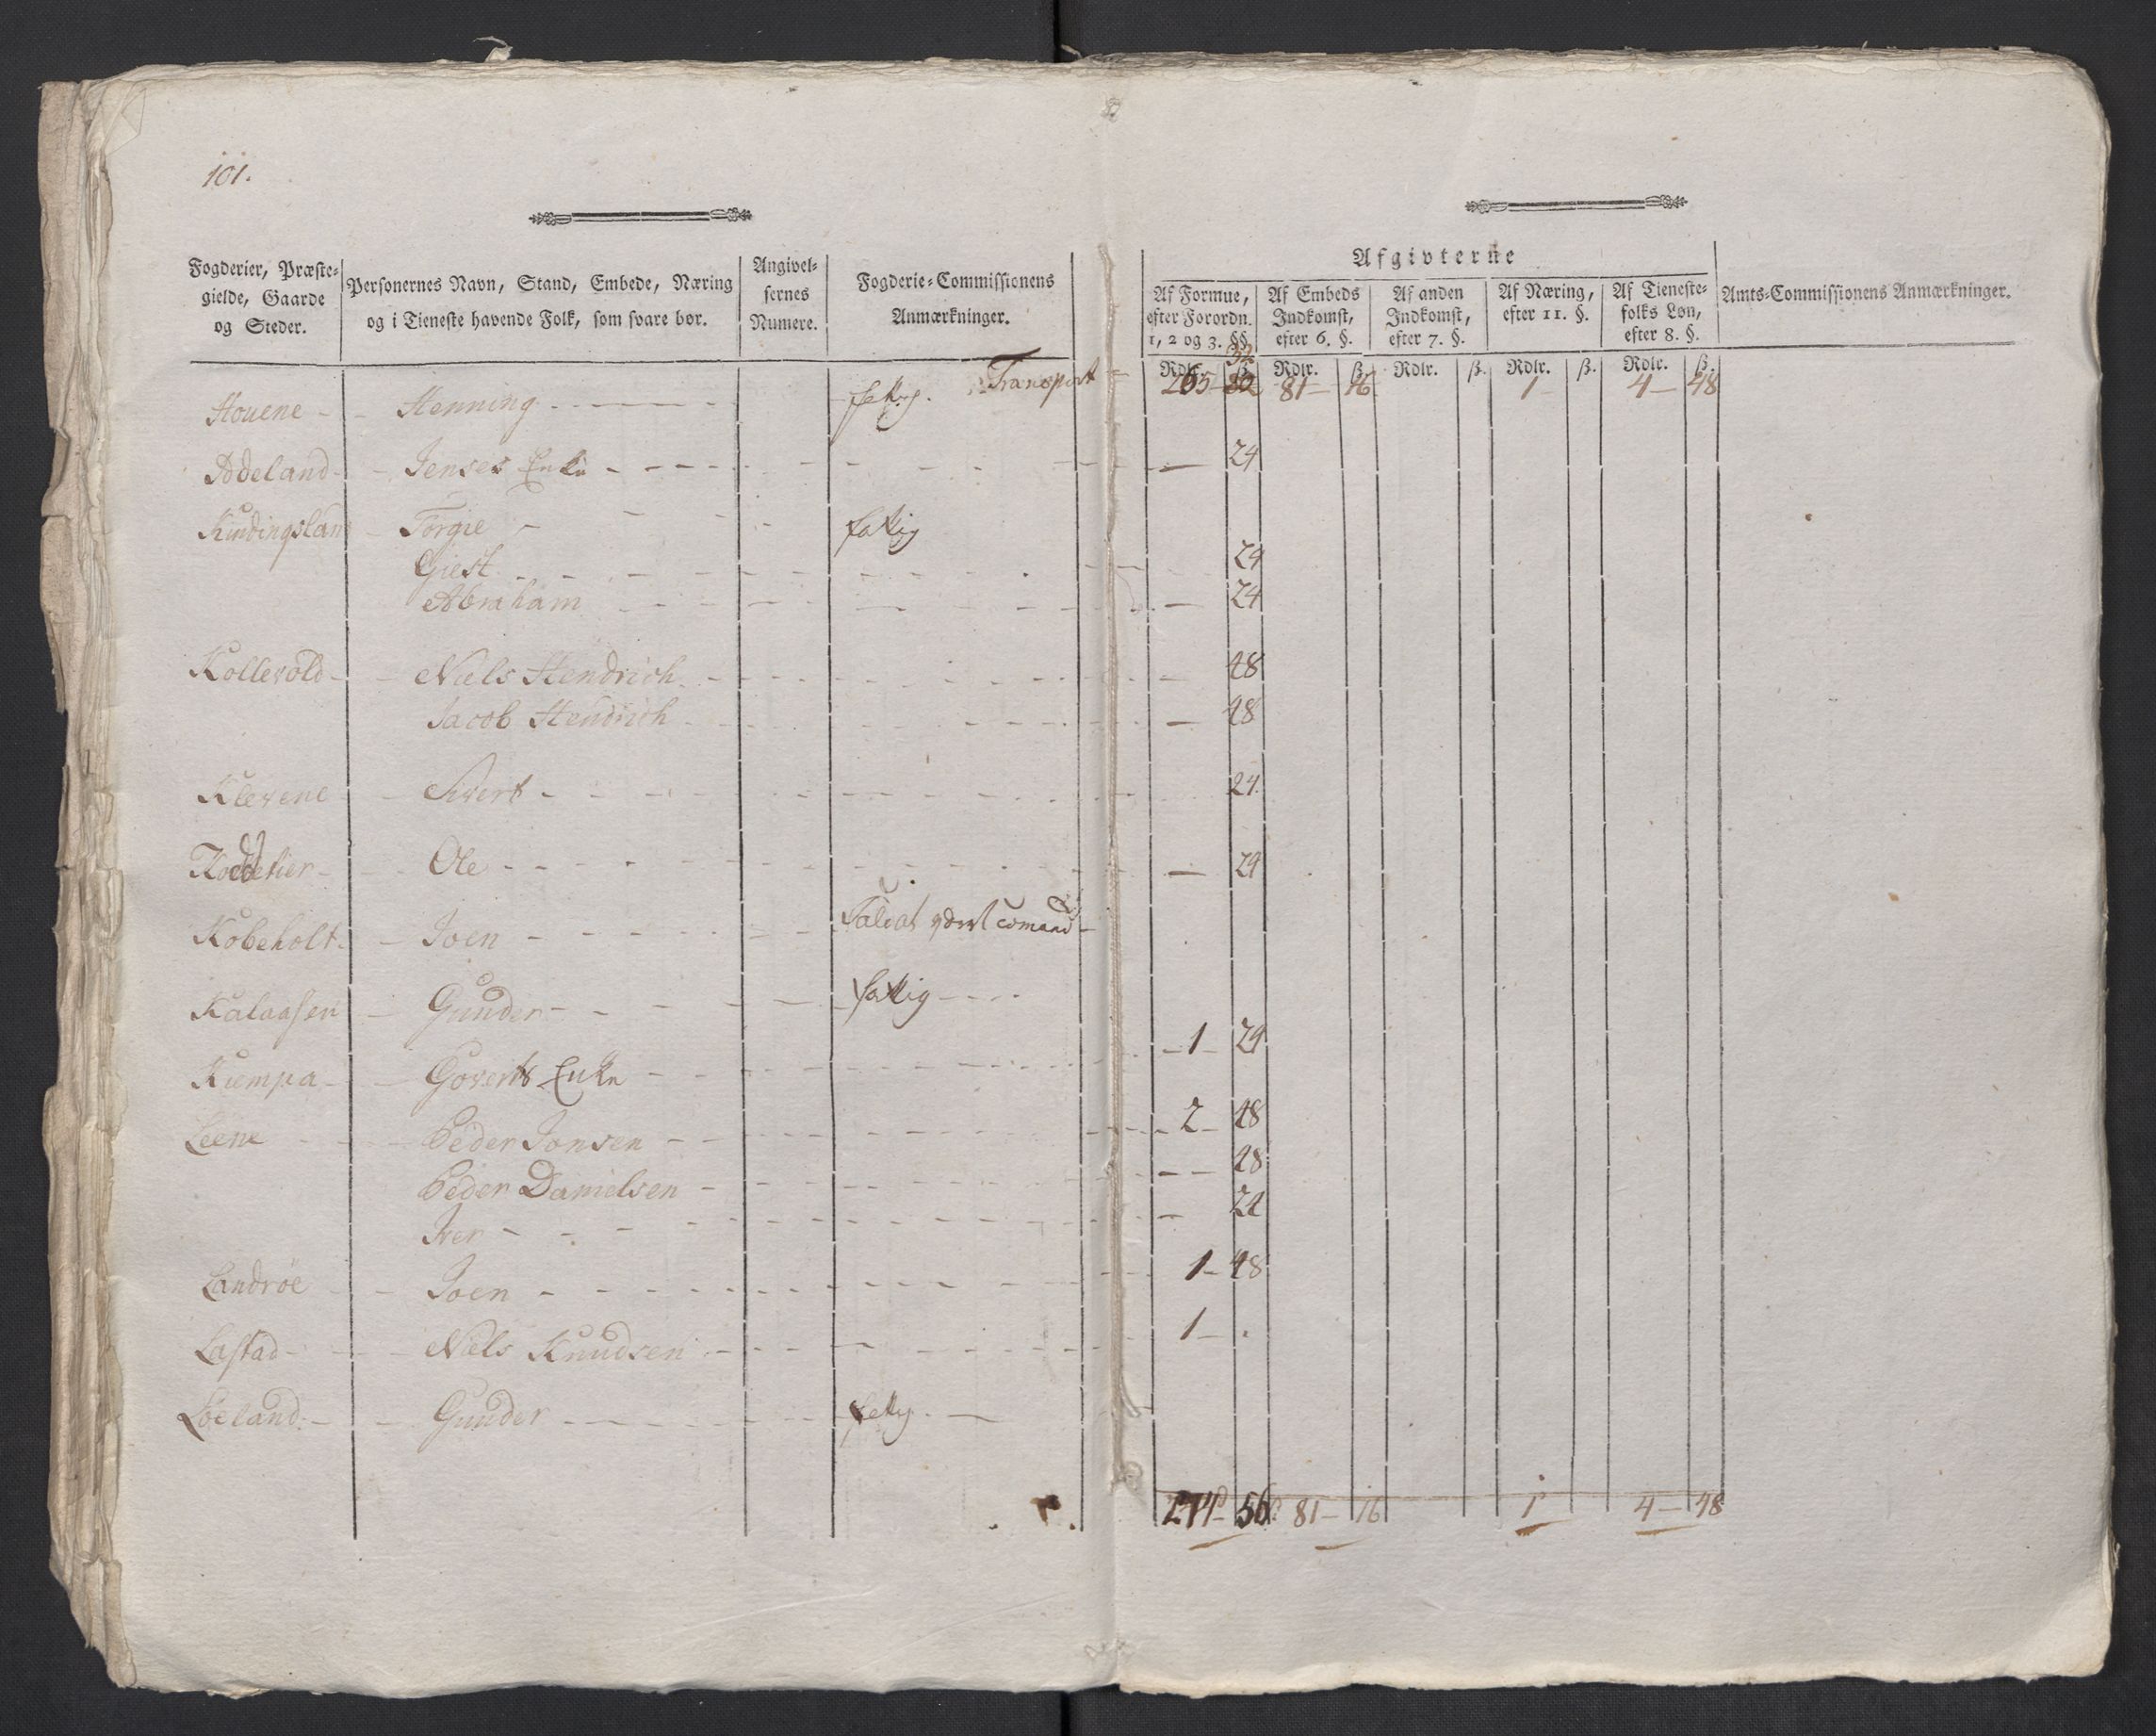 101.
Fogderier, Præste-gielde, Gaarde og Steder. Personernes Navn, Stand, Embede, Næring og i Tieneste havende Folk, som svare bør. Angivel-sernes Numere. Fogderie-Commissionens Anmærkninger.
Afgivterne
Af Formue, efter Forordn. 1, 2 og 3. §§. Af Embeds Indkomst, efter 6. §. Af anden Indkomst, efter 7. §. Af Næring, efter 11. §. Af Tieneste-folks Løn, efter 8. §. Amts-Commissionens Anmærkninger.
Rdlr. ß. Rdlr. ß. Rdlr. ß. Rdlr. ß. Rdlr. ß.
Transport 265 32 81 16 1 4 48
Houene Henning fattig.
Adeland Jenses Enke 24
Kundingsland Torgie fattig
Giest 24
Abraham 24
Kollevold Niels Hendrich 48
Jacob Hendrich 48
Klevene Sivert 24
Ole 24
Kobeholt Joen Saldat comand
Kalaasen Gunder fattig
Kumpa Goverts Enke 1 24
Leene Peder Jonsen 2 48
Peder Danielsen 48
Iver 24
Landrøe Joen 1 48
Lastad Niels Knudsen 1 .
Løeland Gunder fattig.
274 56 81 16 1 4 48